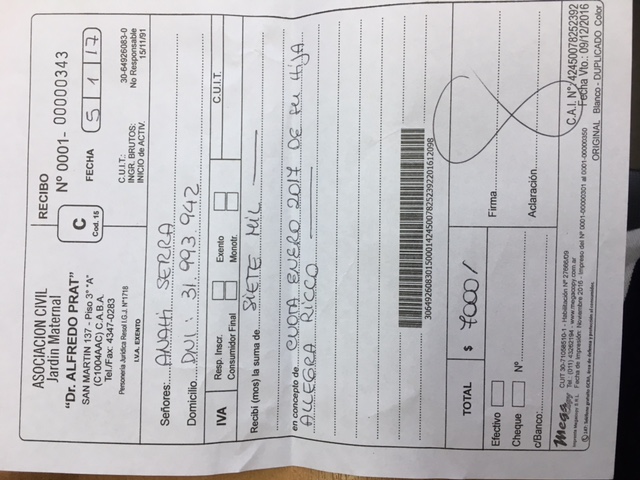 ASOCIACION CIVIL
Jardín Maternal
"Dr. ALFREDO PRAT"
SAN MARTIN 137 - Piso 3° "A"
(C1004AAC) C.A.B.A.
Tel./Fax: 4347-0283
Personería Jurídica Resol I.G.J. N°1718
I.V.A. EXENTO
C
Cod. 15
RECIBO
Nº 0001- 00000343
FECHA 5 1 17
C.U.I.T.: 30-64926083-0
INGR. BRUTOS: No Responsable
INICIO de ACTIV. 15/11/91
Señores: ANAHI SERRA
Domicilio DNI: 31.993.942
IVA
Resp. Inscr. Exento
Consumidor Final Monotr.
C.U.I.T.
Recibí (mos) la suma de SIETE MIL
en concepto de CUOTA ENERO 2017 DE SU HIJA
ALLEGRA RICCO
3064926083015000142450078252392201612098
TOTAL $ 7000/
Efectivo
Cheque Nº
c/Banco:
Firma
Aclaración
Mega copy
Imprenta Megacopy S.R.L.
CUIT 30-71058510-1 - Habilitación Nº 27666/09
Tel.: (011) 43262194 - www.megacopy.com.ar
Fecha de Impresión: Noviembre 2016 - Impreso del Nº 0001-00000301 al 0001-00000350
C.A.I. N°: 42450078252392
Fecha Vto.: 09/12/2016
ORIGINAL Blanco - DUPLICADO Color